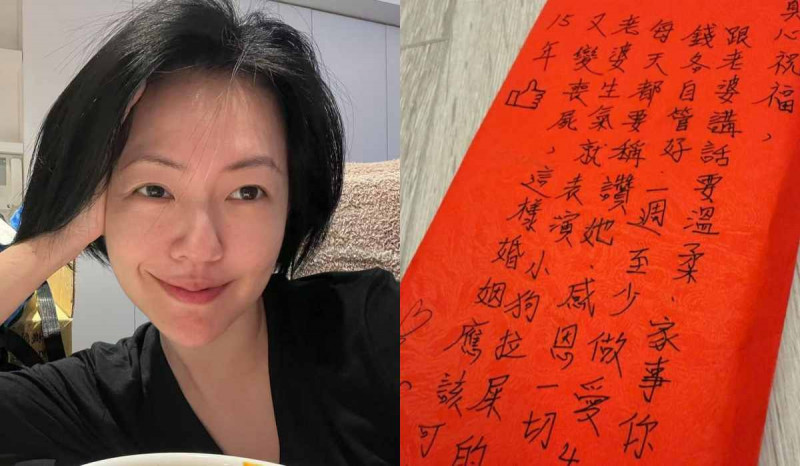 真心祝福,
跟老婆講話要溫柔.家事你
錢各自管好一週至少做愛4
每天都要稱讚她.感恩一切
老婆生氣就表演小狗拉屎的
又變喪屍,這樣婚姻應該可
15年